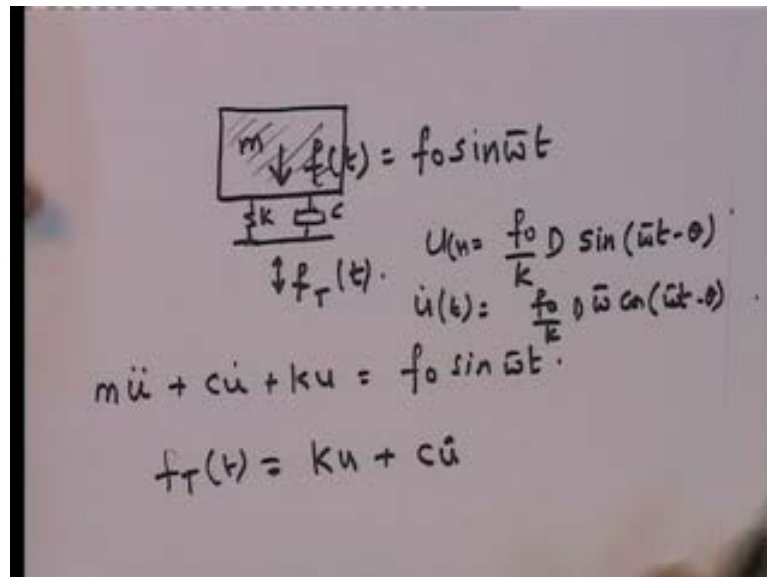 m f(t) = f₀ sin ω̄t
k c
f_T(t).
u(t) = f₀/k D sin(ω̄t-θ)
u̇(t) = f₀/k D ω̄ cos(ω̄t-θ)
mü + cu̇ + ku = f₀ sin ω̄t.
f_T(t) = ku + cu̇